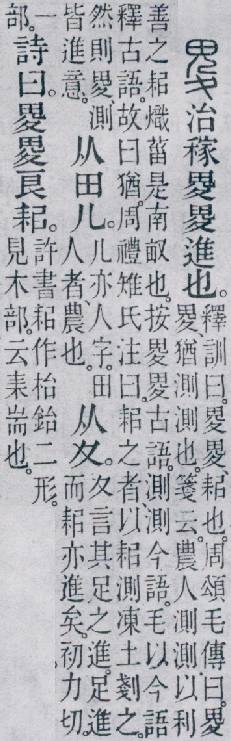 畟治稼畟畟進也。
釋訓曰。畟畟、耜也。周頌毛傳曰。畟
畟猶測測也。箋云。農人測測以利
善之耜熾菑是南畝也。按畟畟古語。測測今語。毛以今語
釋古語。故曰猶。周禮雉氏注曰。耜之者、以耜測凍土剗之。
然則畟測
皆進意。
从田儿。
儿亦人字。田
人者、農也。
从夊。
夊言其足之進。足進
而耜亦進矣。初力切。
一
部。
詩曰。畟畟良耜。
許書耜作枱鈶二形。
見木部。云耒耑也。